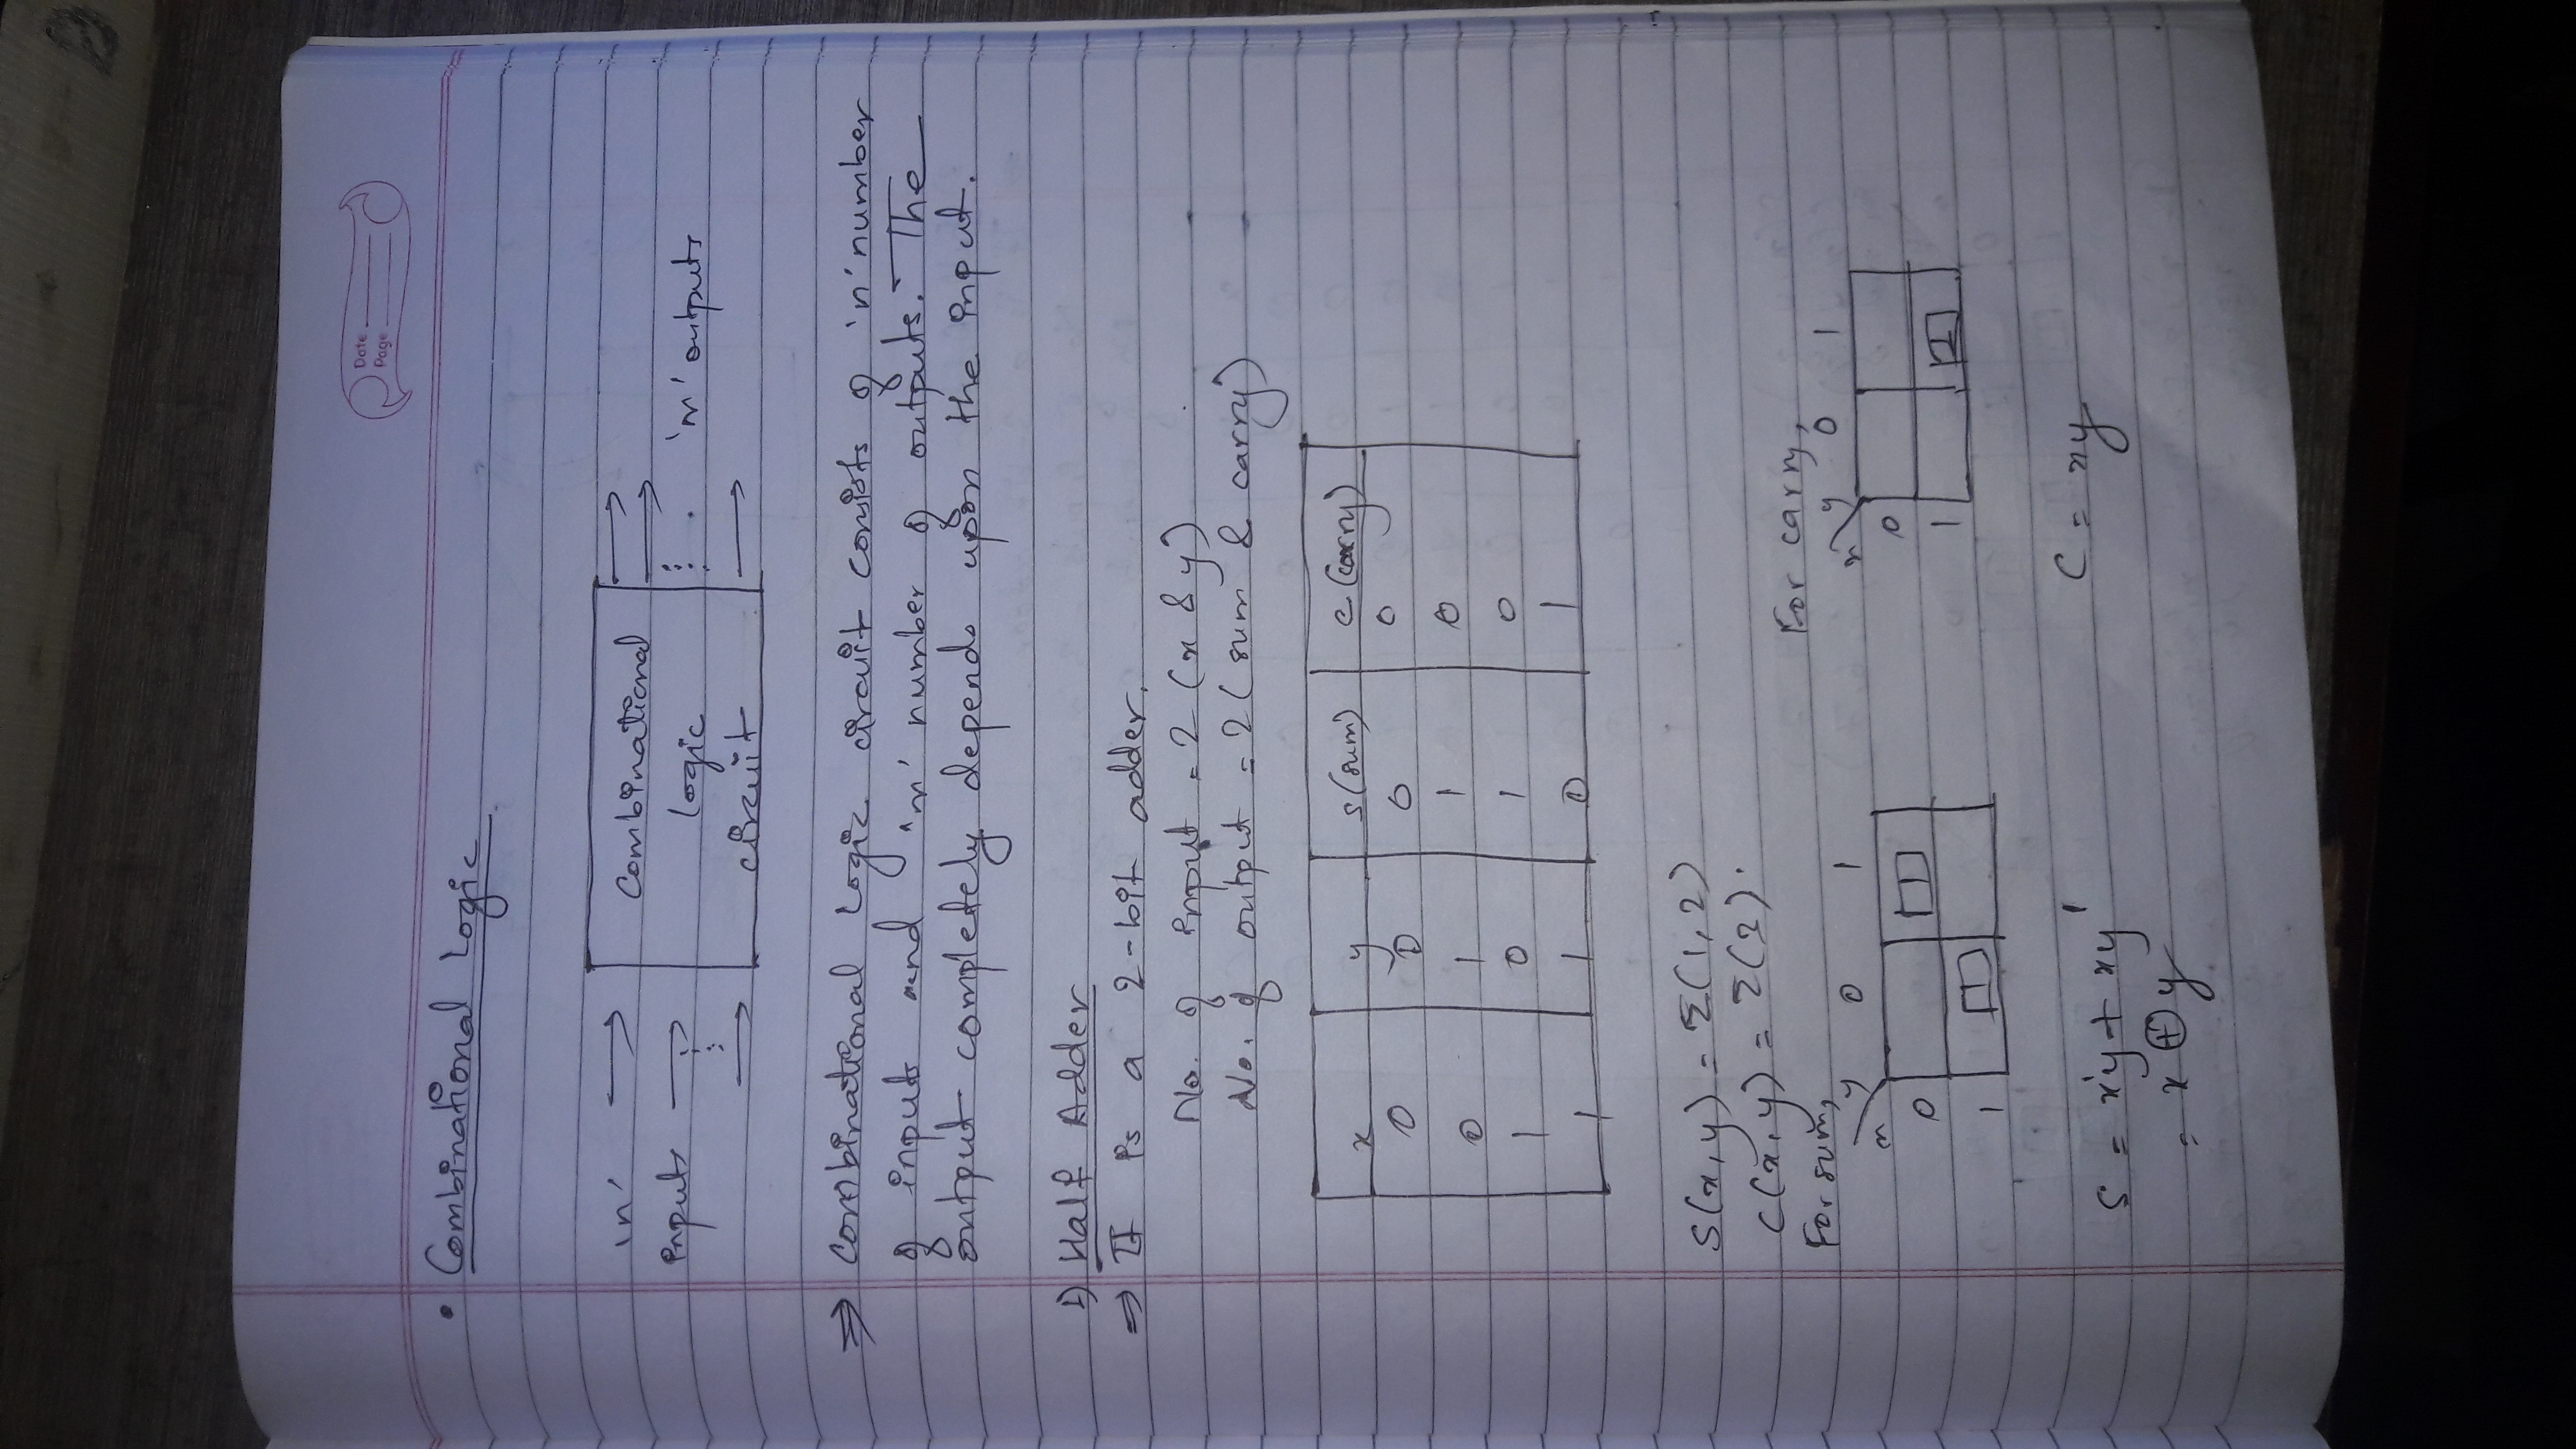 Date
Page
• Combinational Logic
'n'
inputs
Combinational
logic
circuit
'm' outputs
⇒ Combinational Logic circuit consists of 'n' number
of inputs and 'm' number of outputs. The
output completely depends upon the input.
1) Half Adder
⇒ It is a 2-bit adder.
No. of input = 2 (x & y)
No. of output = 2 (sum & carry)
x y s(sum) c(carry)
0 0 0 0
0 1 1 0
1 0 1 0
1 1 0 1
S(x,y) = Σ(1,2)
C(x,y) = Σ(3).
For sum,
x y 0 1
0 1
1 1
For carry,
x y 0 1
0
1 1
S = x'y + xy'
= x ⊕ y
C = xy